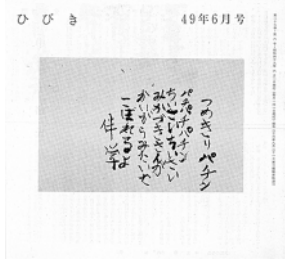 ひびき
49年6月号
つめきり パチン
パチパチパチン
ちいさいちいさい
みかづきさんが
かいがらみたいに
こぼれるよ